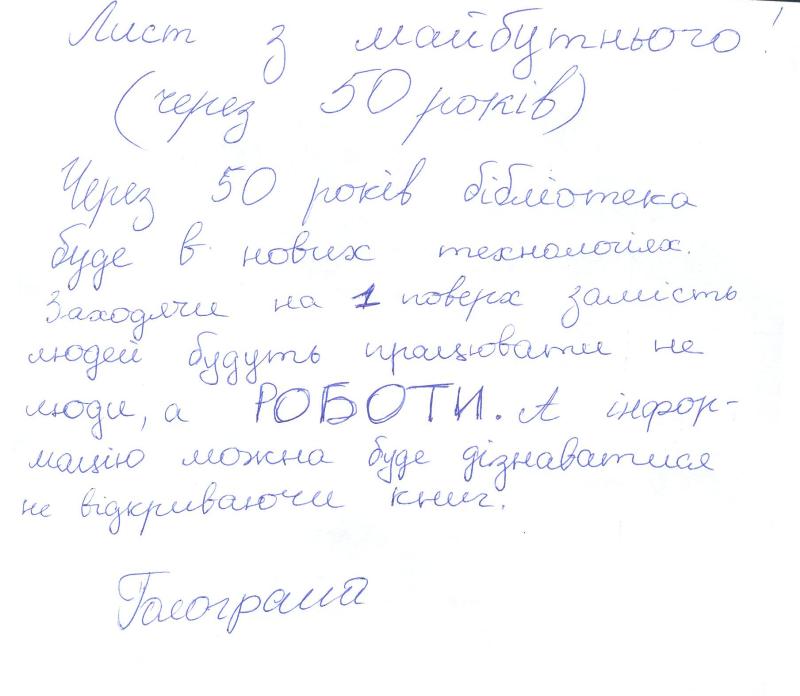 Лист з майбутнього!
(через 50 років)
Через 50 років бібліотека
буде в нових технологіях.
Заходячи на 1 поверх замість
людей будуть працювати не
люди, а РОБОТИ. А інфор-
мацію можна буде дізнаватися
не відкриваючи книг.
Голограма